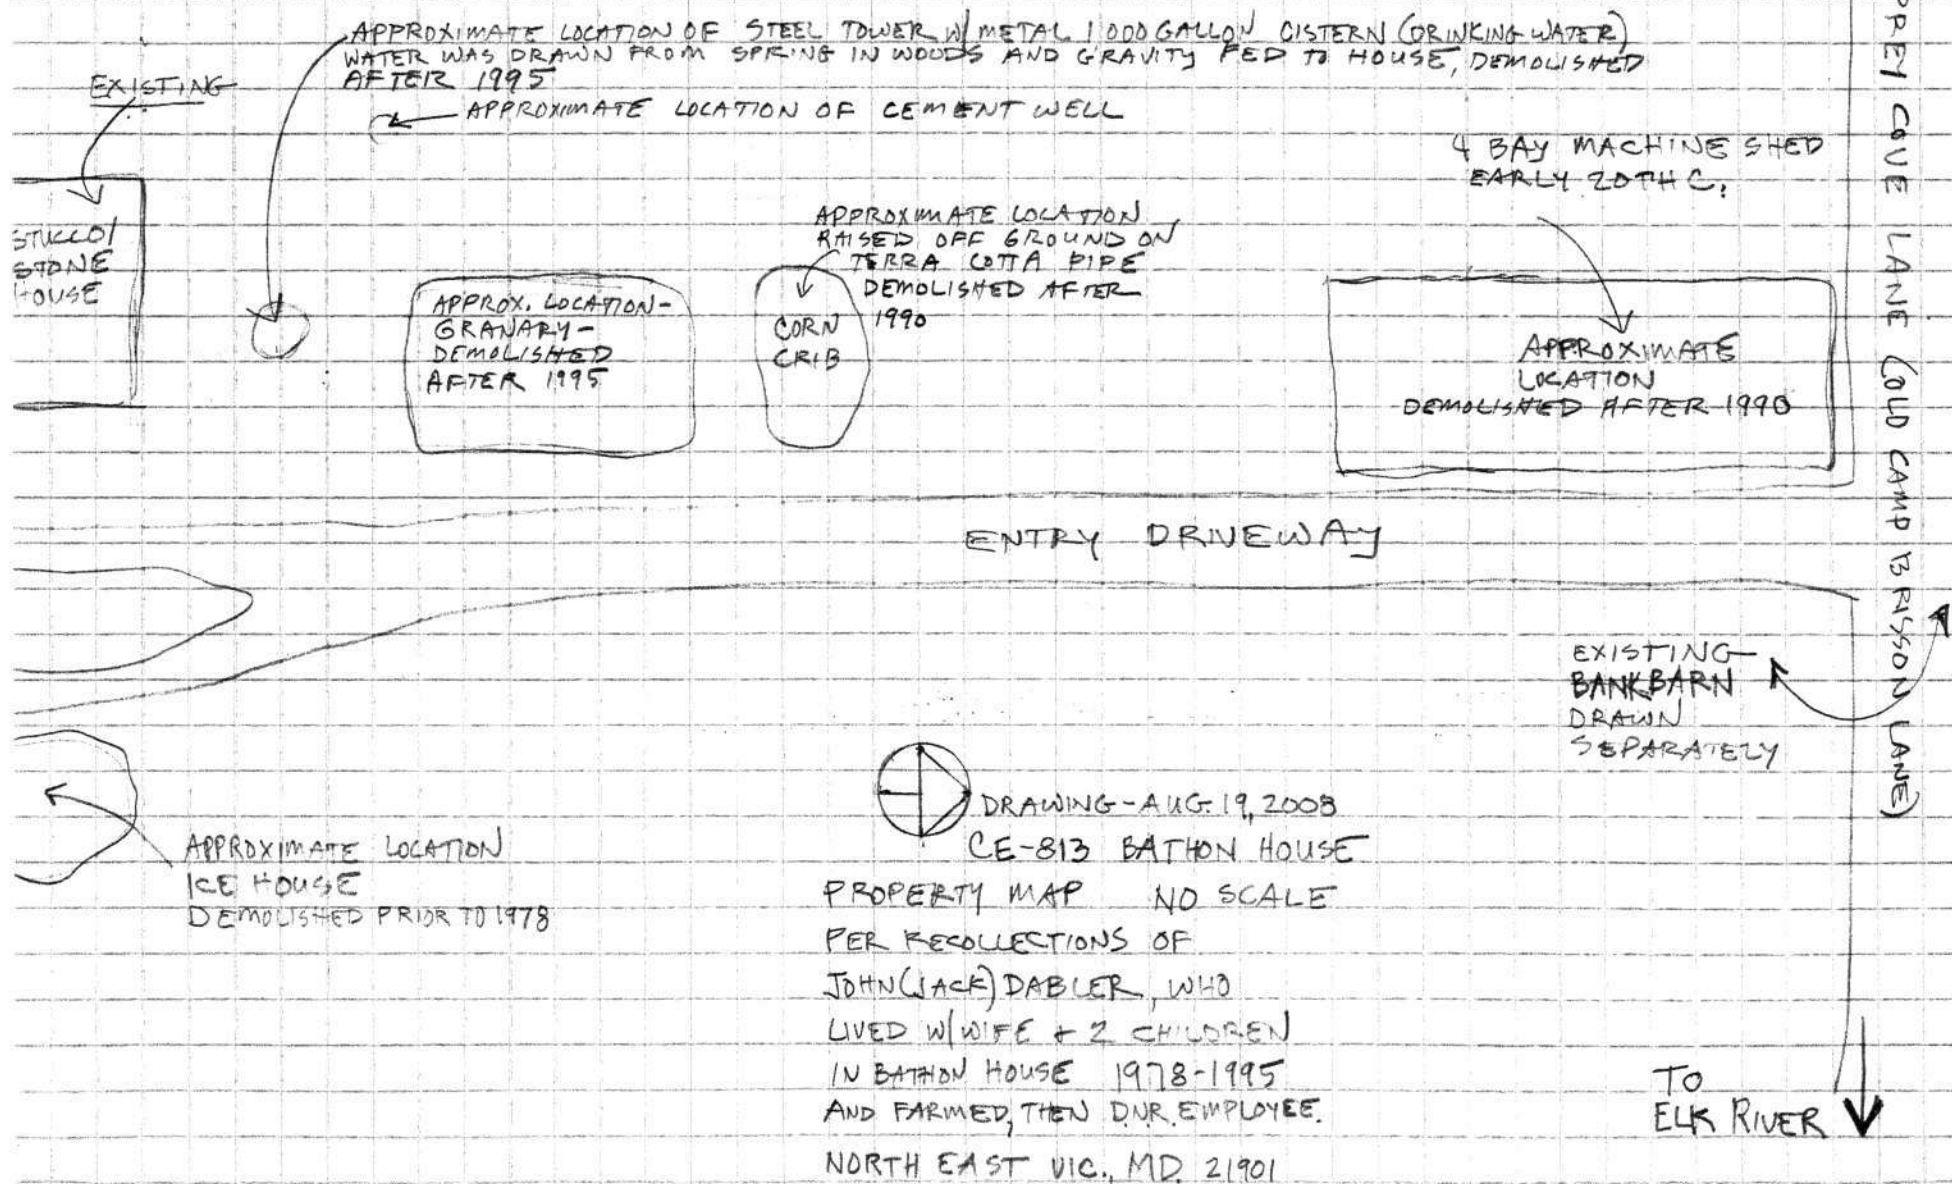 APPROXIMATE LOCATION OF STEEL TOWER W/ METAL 1000 GALLON CISTERN (DRINKING WATER)
WATER WAS DRAWN FROM SPRING IN WOODS AND GRAVITY FED TO HOUSE, DEMOLISHED
AFTER 1995
EXISTING
APPROXIMATE LOCATION OF CEMENT WELL
4 BAY MACHINE SHED
EARLY 20TH C.
STUCCO/
STONE
HOUSE
APPROXIMATE LOCATION
RAISED OFF GROUND ON
TERRA COTTA PIPE
DEMOLISHED AFTER
1990
APPROX. LOCATION-
GRANARY-
DEMOLISHED
AFTER 1995
CORN
CRIB
APPROXIMATE
LOCATION
DEMOLISHED AFTER 1990
COVE LANE (OLD CAMP BRISSON LANE)
ENTRY DRIVEWAY
EXISTING
BANKBARN
DRAWN
SEPARATELY
APPROXIMATE LOCATION
ICE HOUSE
DEMOLISHED PRIOR TO 1978
DRAWING-AUG. 19, 2008
CE-813 BATHON HOUSE
PROPERTY MAP NO SCALE
PER RECOLLECTIONS OF
JOHN (JACK) DABLER, WHO
LIVED W/ WIFE + 2 CHILDREN
IN BATHON HOUSE 1978-1995
AND FARMED, THEN D.N.R. EMPLOYEE.
NORTH EAST VIC., MD. 21901
TO
ELK RIVER